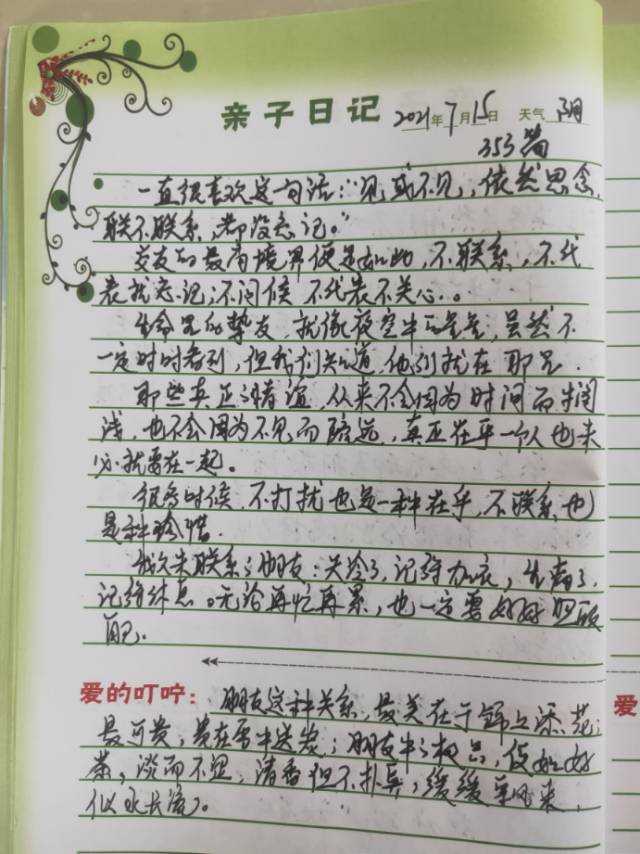 亲子日记 2021年7月15日 天气 阴
353篇
一直很喜欢这句话:“见或不见,依然思念,
联不联系,都没忘记。”
交友的最高境界便是如此,不联系,不代
表就忘记;不问候 不代表不关心。
生命里的挚友,就像夜空中的星星,虽然不
一定时时看到,但我们知道,他们就在那里.
那些真正的情谊,从来不会因为时间而
浅,也不会因为不见而疏远,真正在乎一个人也未
必就要在一起。
很多时候,不打扰也是一种在乎,不联系也
是种珍惜.
我久未联系的朋友:天冷了,记得加衣,生病了,
记得休息。无论再忙再累,也一定要好好照顾
自己.
爱的叮咛:朋友这种关系,最美在于锦上添花;
最可贵,贵在雪中送炭;朋友中之极品,便如好
茶,淡而不涩,清香但不扑鼻,缓缓飘来,
似水长流。
爱